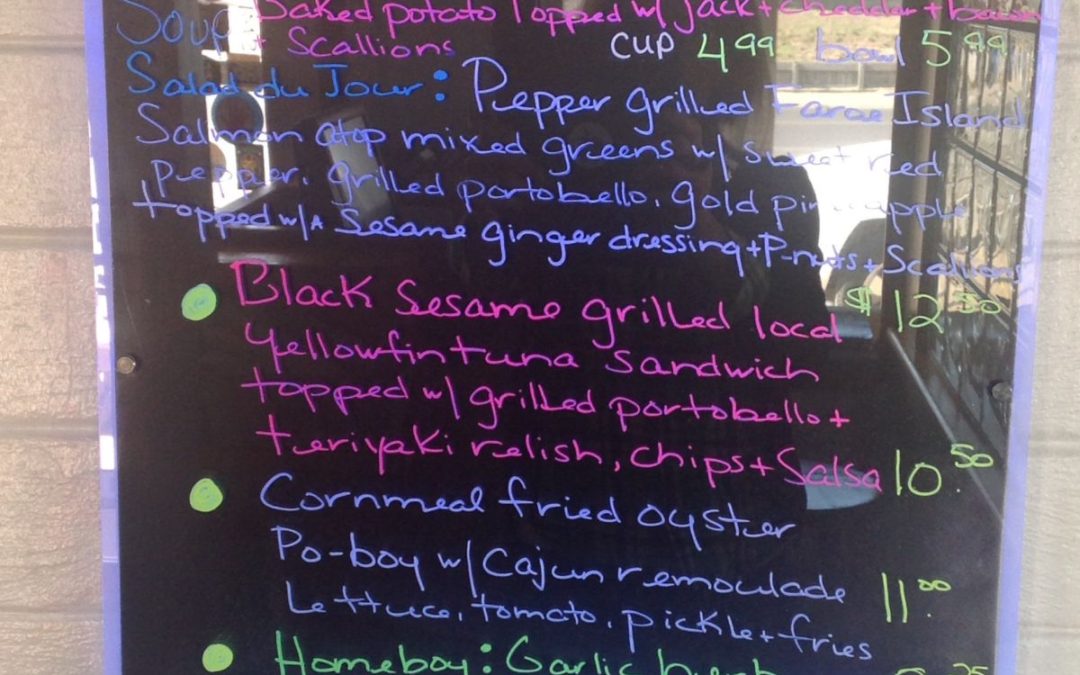 Soup Baked potato Topped w/ Jack + cheddar + bacon
+ Scallions cup 4.99 bowl 5.99
Salad du Jour: Pepper grilled Farae Island
Salmon atop mixed greens w/ sweet red
Pepper, grilled portobello, gold pineapple
topped w/A Sesame ginger dressing + P-nuts + Scallions
$12.50
Black Sesame grilled local
Yellowfin tuna sandwich
topped w/ grilled portobello +
teriyaki relish, chips + Salsa 10.50
Cornmeal fried oyster
Po-boy w/ Cajun remoulade 11.00
Lettuce, tomato, pickle + fries
Homeboy: Garlic herb